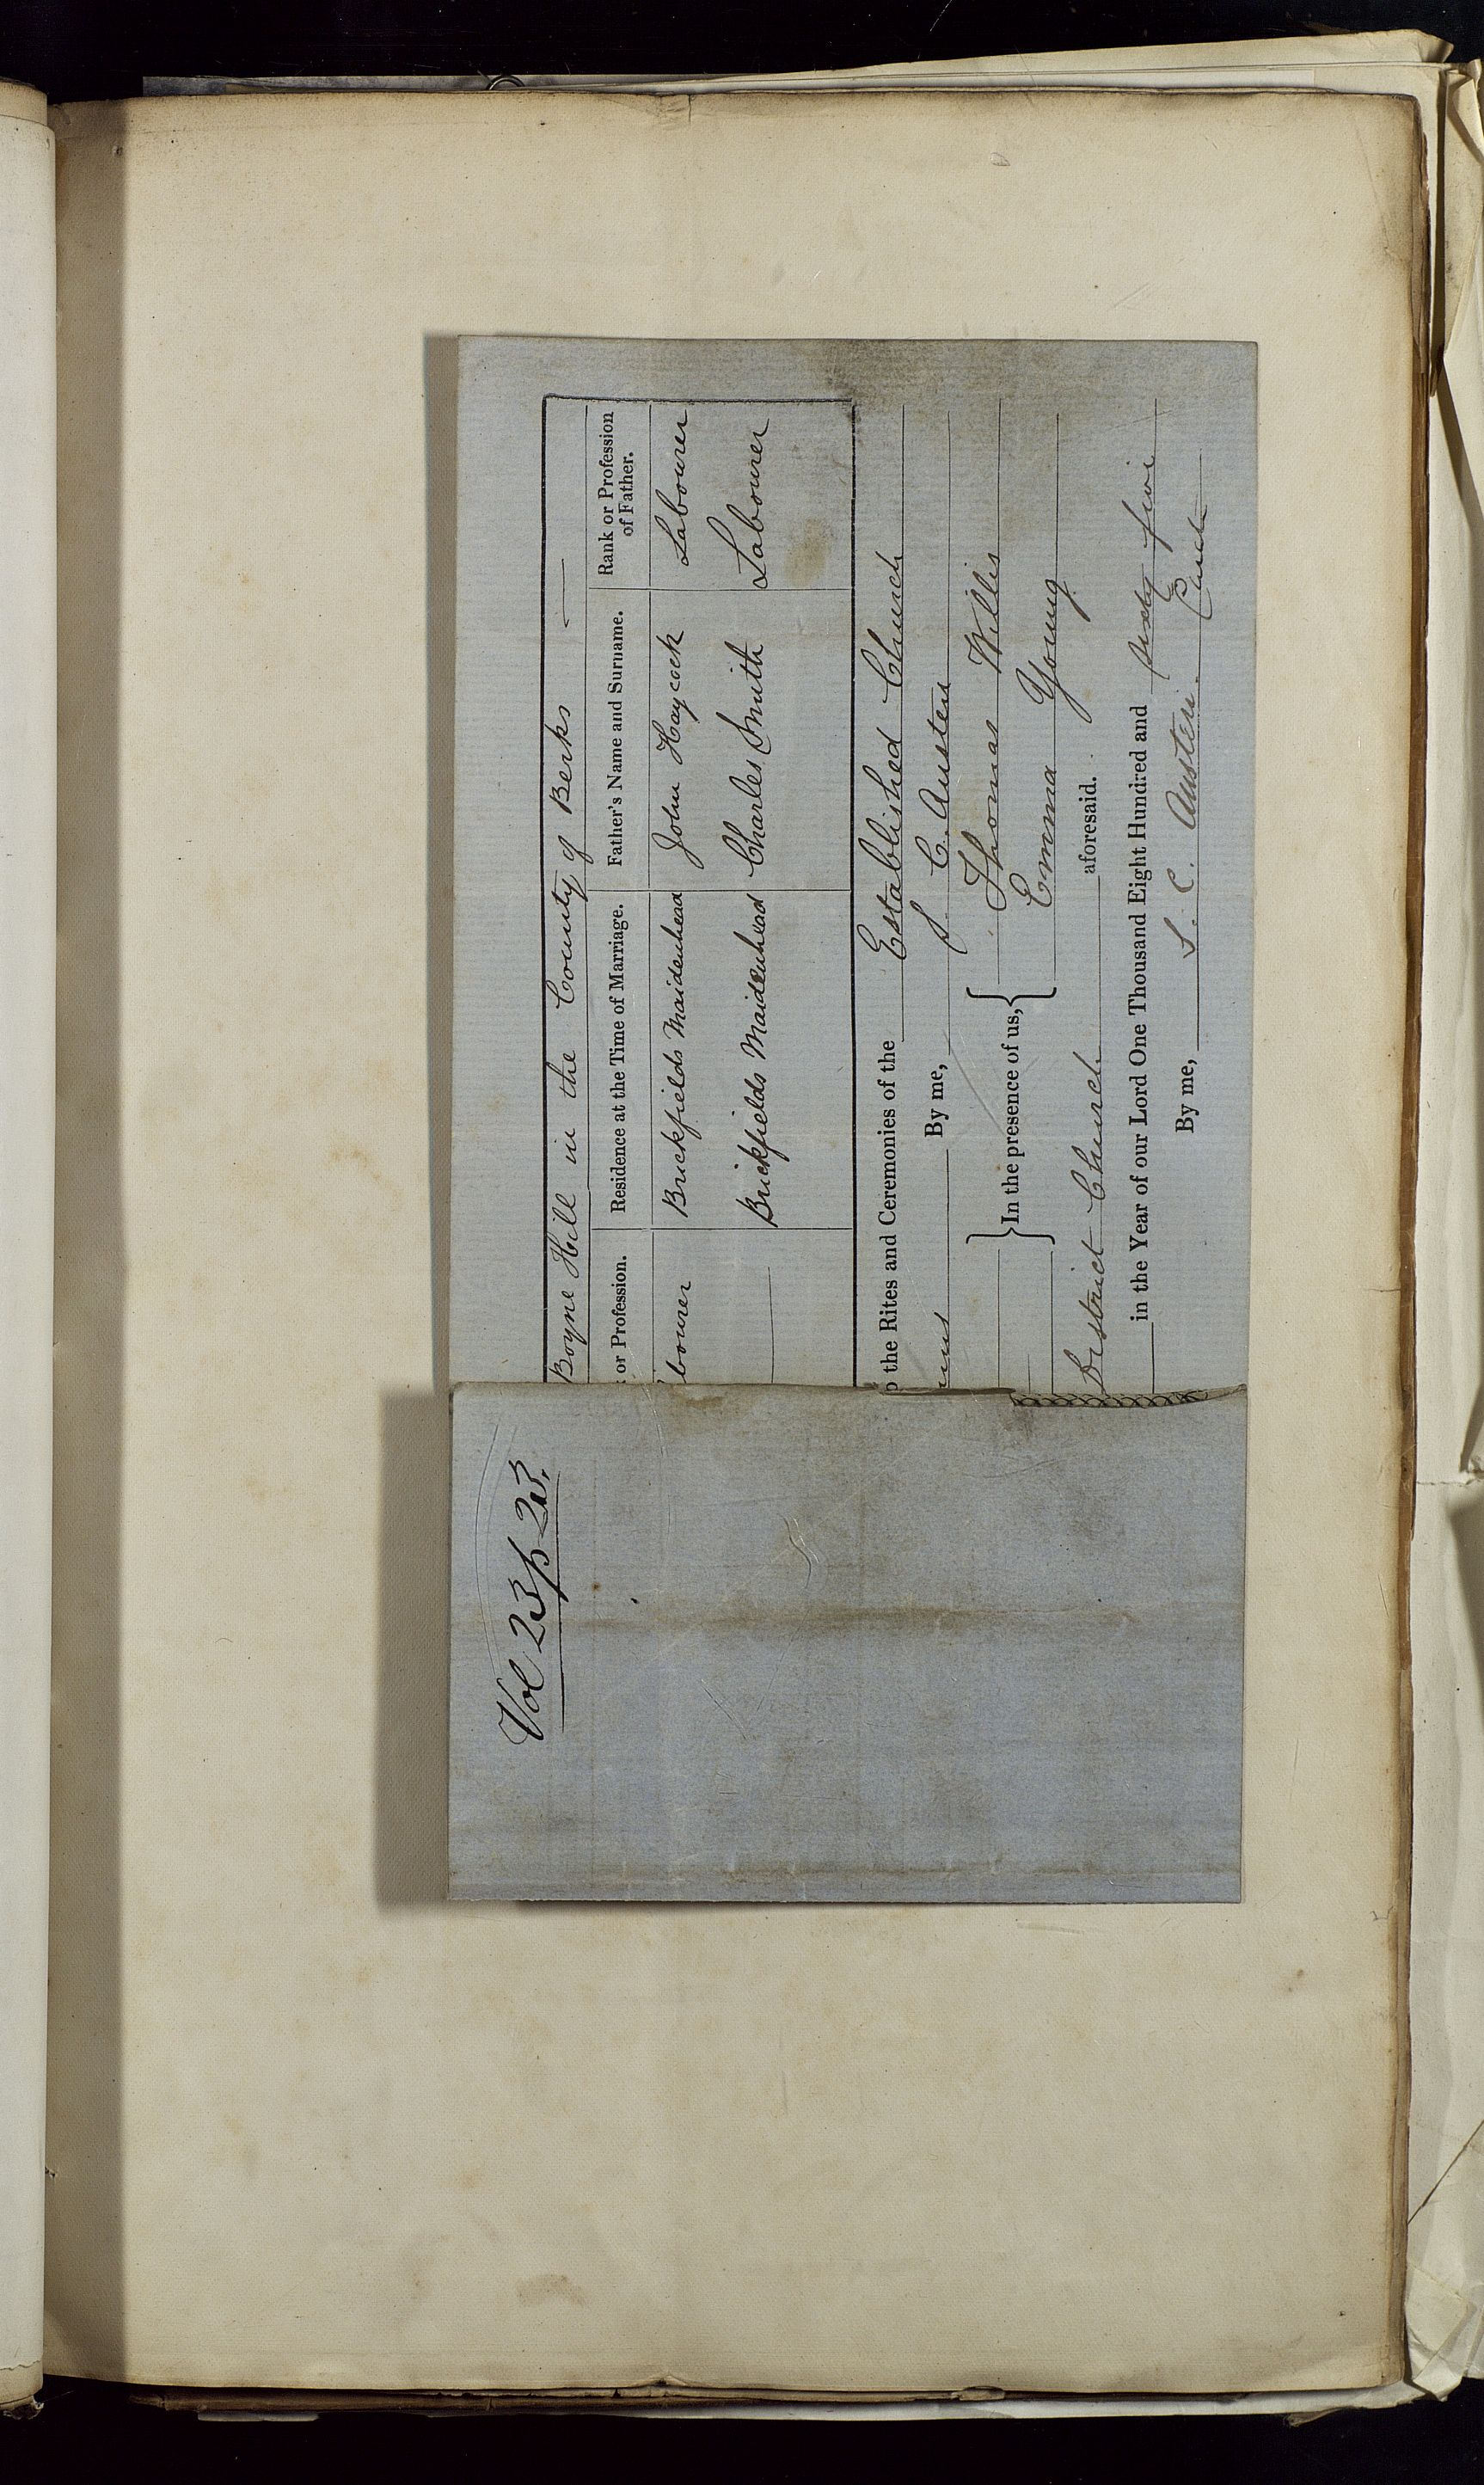 Vol 23 p 23.
Boyne Hill in the County of Berks
or Profession. Residence at the Time of Marriage. Father's Name and Surname. Rank or Profession of Father.
bourer Brickfields Maidenhead John Haycock Labourer
Brickfields Maidenhead Charles Smith Labourer
the Rites and Ceremonies of the Established Church
By me, S. C. Austen
In the presence of us, Thomas Willis
Emma Young
District Church aforesaid.
in the Year of our Lord One Thousand Eight Hundred and sixty five
By me, S. C. Austen.